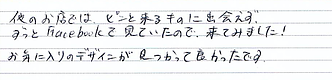 他のお店では、ピンと来るものに出会えず、
ずっとFacebookで見ていたので、来てみました！
お気に入りのデザインが見つかって良かったです。